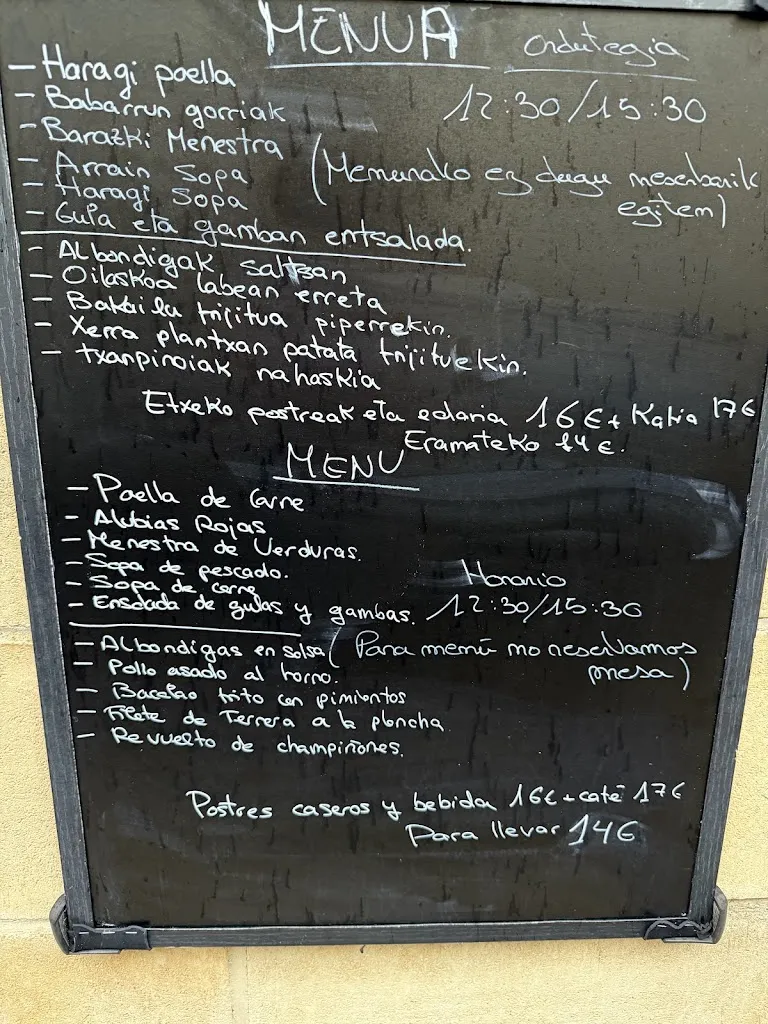 MENUA
ordutegia
12:30/15:30
- Haragi paella
- Babarrun gorriak
- Barazki Menestra
- Arrain Sopa
- Haragi Sopa
- Gula eta gamban entsalada.
(Menurako ez dugu meserbarik
egiten)
- Albondigak saltsan
- Oilaskoa labean erreta
- Bakailu frijitua piperrekin.
- Xerra plantxan patata frijituekin.
- txanpiroiak nahaskia
Etxeko postreak eta edaria 16€+ Kafia 17€
Eramateko 14€.
MENU
- Paella de Carne
- Alubias Rojas
- Menestra de Verduras.
- Sopa de pescado.
- Sopa de carne
- Ensalada de gulas y gambas.
Horario
12:30/15:30
- Albondigas en salsa
- Pollo asado al horno.
- Bacalao frito con pimientos
- Filete de Ternera a la plancha
- Revuelto de champiñones.
(Para menú no reservamos
mesa)
Postres caseros y bebida 16€+café 17€
Para llevar 14€